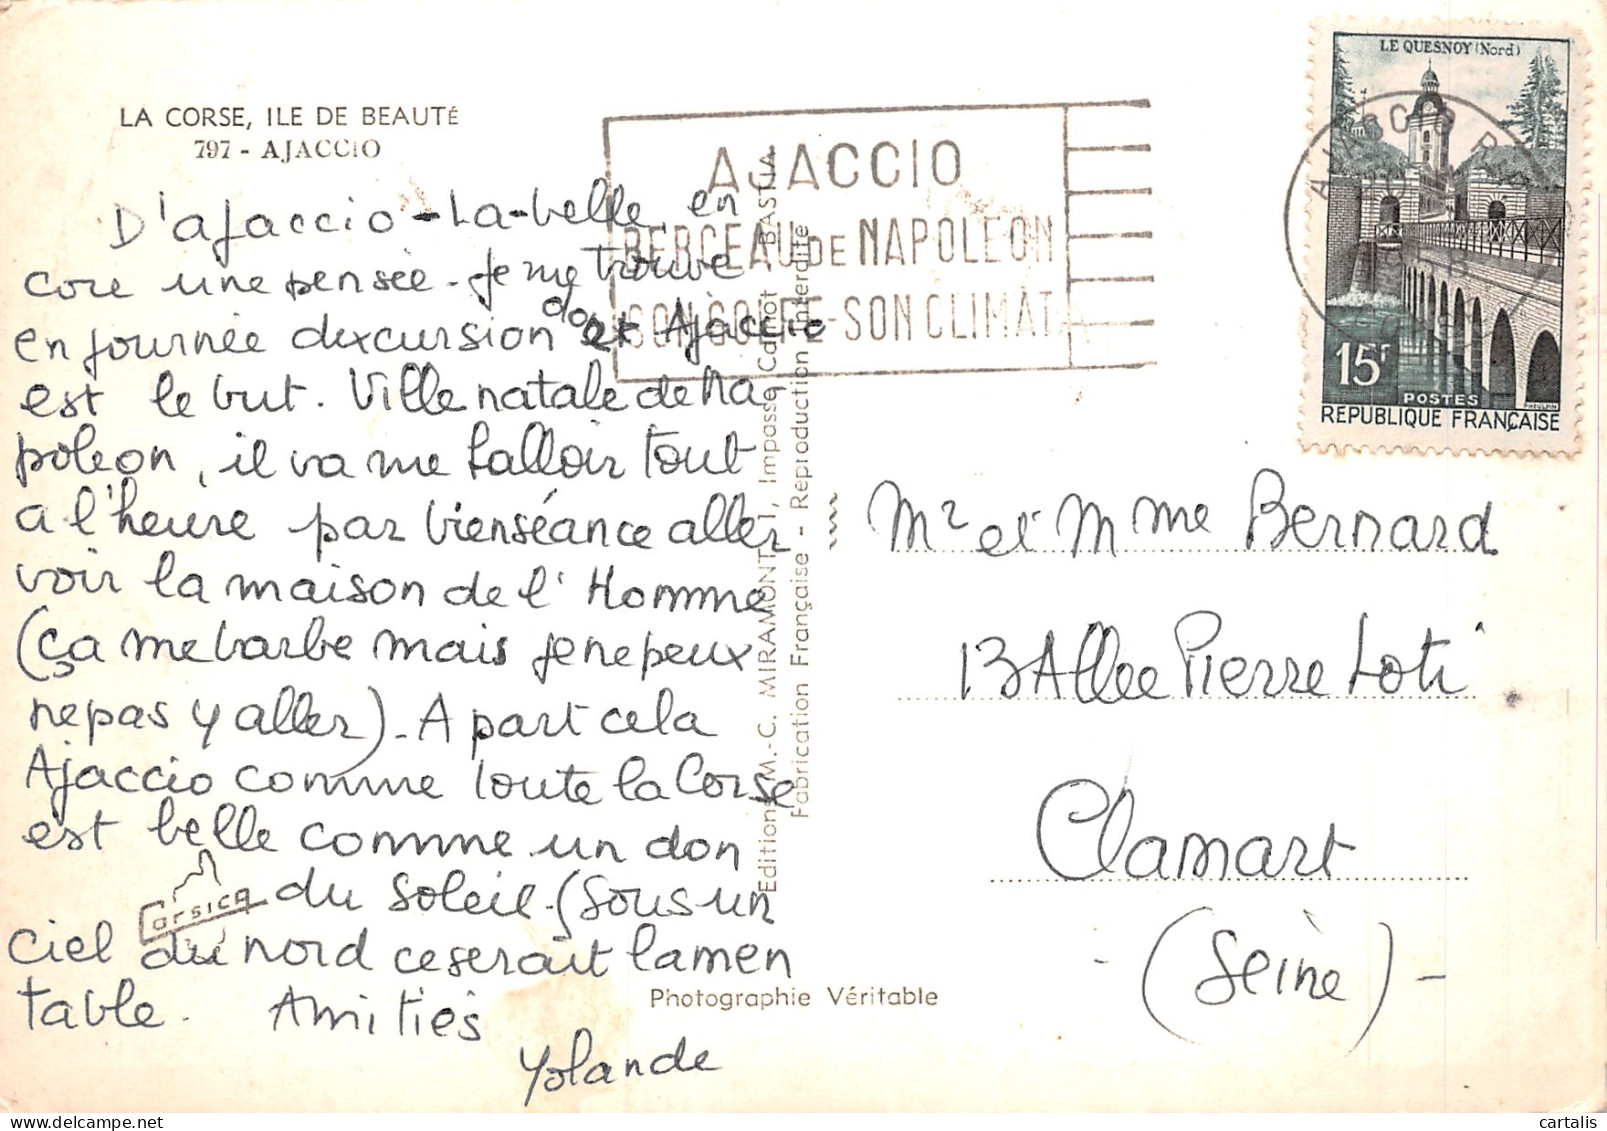 LA CORSE, ILE DE BEAUTÉ
797 - AJACCIO
D'ajaccio-La-belle, en
core une pensée. Je me trouve
en journée dexcursion dont Ajaccio
est le but. Ville natale de Na-
poleon, il va me falloir tout
a l'heure par bienséance aller
voir la maison de l'Homme
(ça me barbe mais je ne peux
ne pas y aller). A part cela
Ajaccio comme toute la Corse
est belle comme un don
du soleil. (Sous un
ciel du nord ce serait lamen
table. Amitiés
Yolande
Corsica
Editions M.-C. MIRAMONTI, Impasse Carnot BASTIA
Fabrication Française - Reproduction Interdite
Photographie Véritable
AJACCIO
BERCEAU DE NAPOLEON
SON GOLFE - SON CLIMAT
AJACCIO R.P.
LE QUESNOY (Nord)
15F
POSTES
REPUBLIQUE FRANÇAISE
Mr et Mme Bernard
13 Allee Pierre Loti
Clamart
- (Seine) -
© cartalis